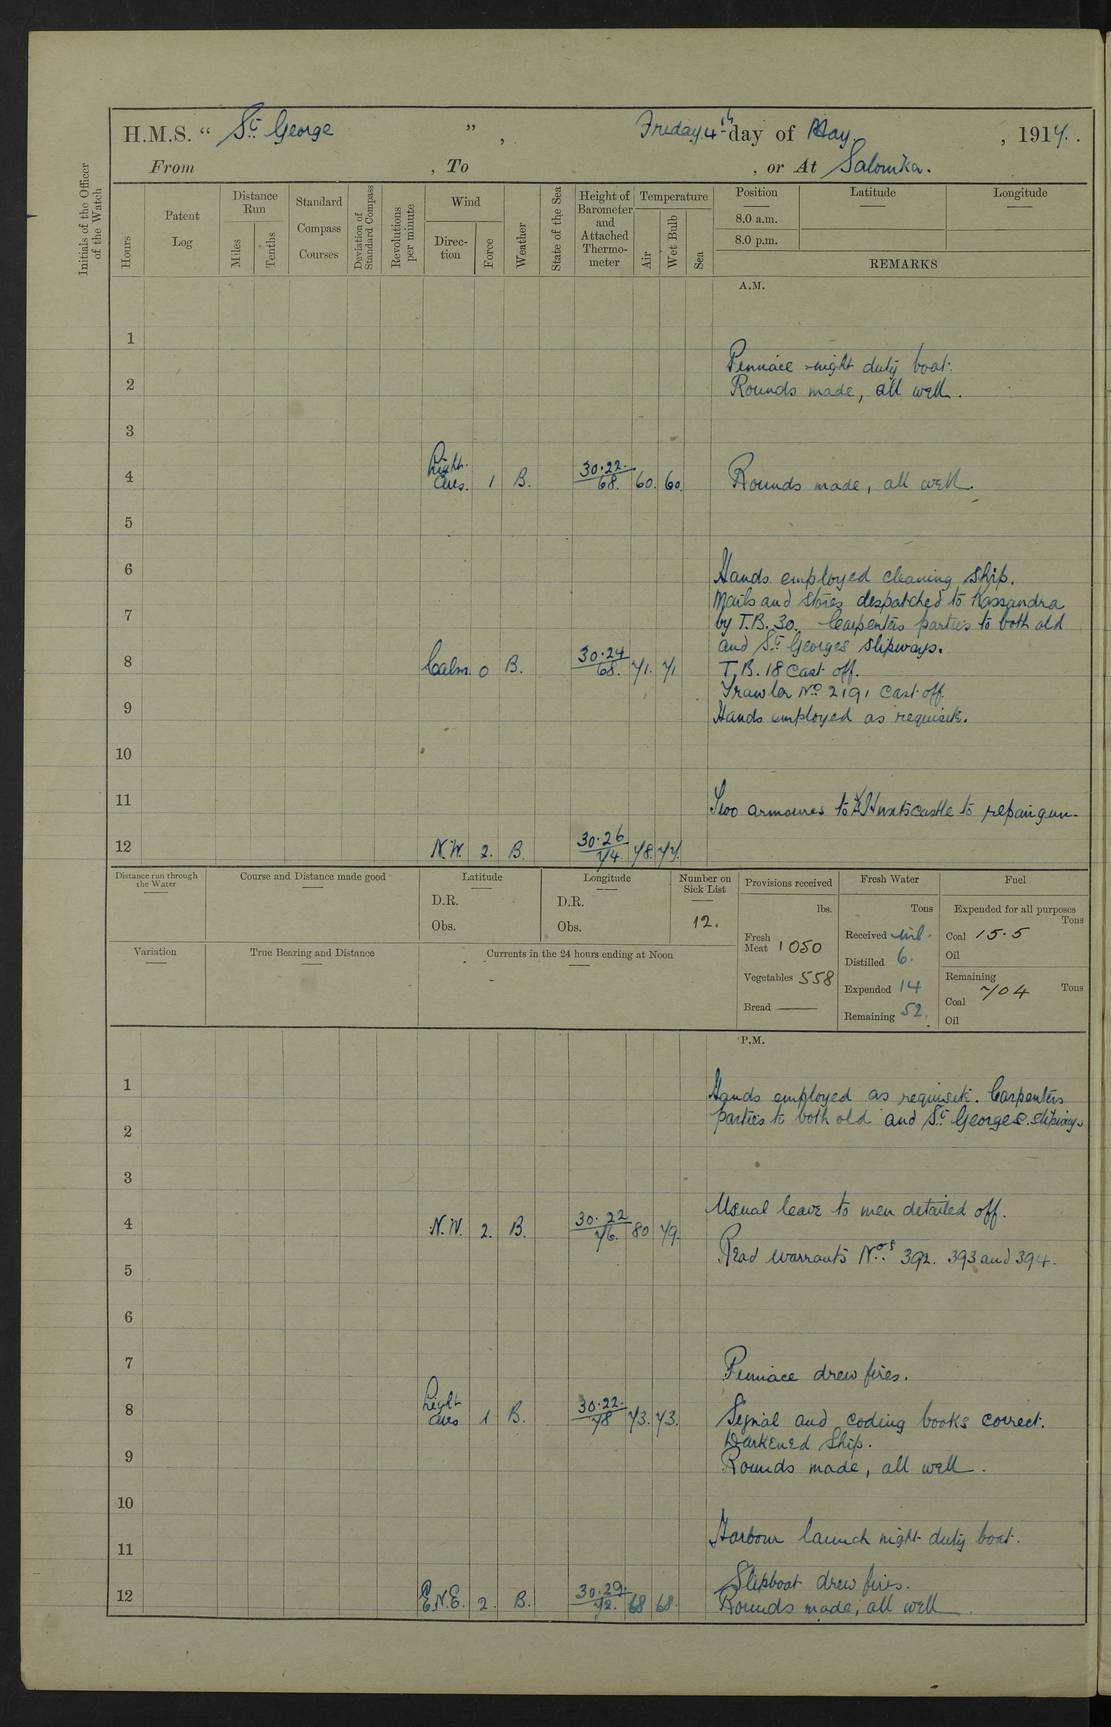 H.M.S. “ St. George ” , Friday 4th day of May , 1917.
From , To , or At Salonika.
Initials of the Officer of the Watch
Hours
Patent Log
Distance Run
Miles
Tenths
Standard Compass Courses
Deviation of Standard Compass
Revolutions per minute
Wind
Direc-tion
Force
Weather
State of the Sea
Height of Barometer and Attached Thermo-meter
Temperature
Air
Wet Bulb
Sea
Position
8.0 a.m.
8.0 p.m.
Latitude
Longitude
REMARKS
A.M.
1
Pinnace night duty boat.
2 Rounds made, all well.
3
4 Light airs. 1 B. 30.22. 68. 60. 60. Rounds made, all well.
5
6 Hands employed cleaning ship.
Mails and stores despatched to Kassandra
7 by T.B. 30. Carpenters parties to both old
and St. Georges slipways.
8 Calm. 0 B. 30.24 68. 71. 71 T.B. 18 cast off.
Trawler No 2191 cast off.
9 Hands employed as requisite.
10
11 Two armourers to to repair gun.
12 N.W. 2. B. 30.26 74. 78. 77.
Distance run through the Water
Course and Distance made good
Latitude
D.R.
Obs.
Longitude
D.R.
Obs.
Number on Sick List
12.
Provisions received
lbs.
Fresh Meat 1050
Vegetables 558
Bread
Fresh Water
Tons
Received nil.
Distilled 6.
Expended 14
Remaining 52.
Fuel
Expended for all purposes
Tons
Coal 15.5
Oil
Remaining
Tons
Coal 704
Oil
Variation
True Bearing and Distance
Currents in the 24 hours ending at Noon
P.M.
1 Hands employed as requisite. Carpenters
parties to both old and St. Georges slipways
2
3
4 N.W. 2. B. 30.22 76. 80 79. Usual leave to men detailed off.
Read Warrants Nos 392. 393 and 394.
5
6
7 Pinnace drew fires.
8 Light airs 1 B. 30.22. 78 73. 73. Signal and coding books correct.
Darkened Ship.
9 Rounds made, all well.
10
Harbour launch night duty boat.
11
Slipboat drew fires.
12 E.N.E. 2. B. 30.29. 72. 68 68. Rounds made, all well.